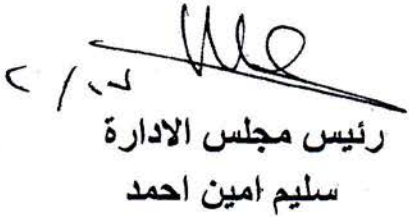 رئيس مجلس الادارة
سليم امين احمد